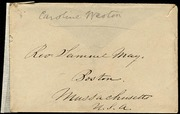 Caroline Weston
Rev Samuel May.
Boston.
Massachusetts
U.S.A